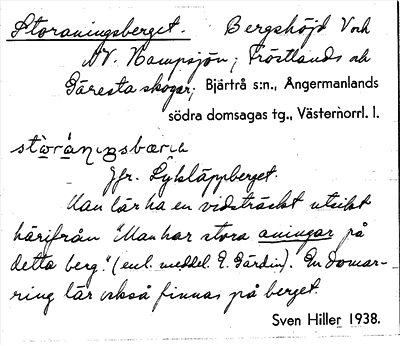 Storaningsberget. Bergshöjd V och
NV. Hampsjön; Fröstlands och
Gäresta skogar; Bjärtrå s:n., Ångermanlands
södra domsagas tg., Västernorrl. l.
Jfr. Lykläppberget.
Man lär ha en vidsträckt utsikt
härifrån "Man har stora aningar på
detta berg." (enl. meddel. E. Gärdin). En domar-
ring lär också finnas på berget.
Sven Hiller 1938.